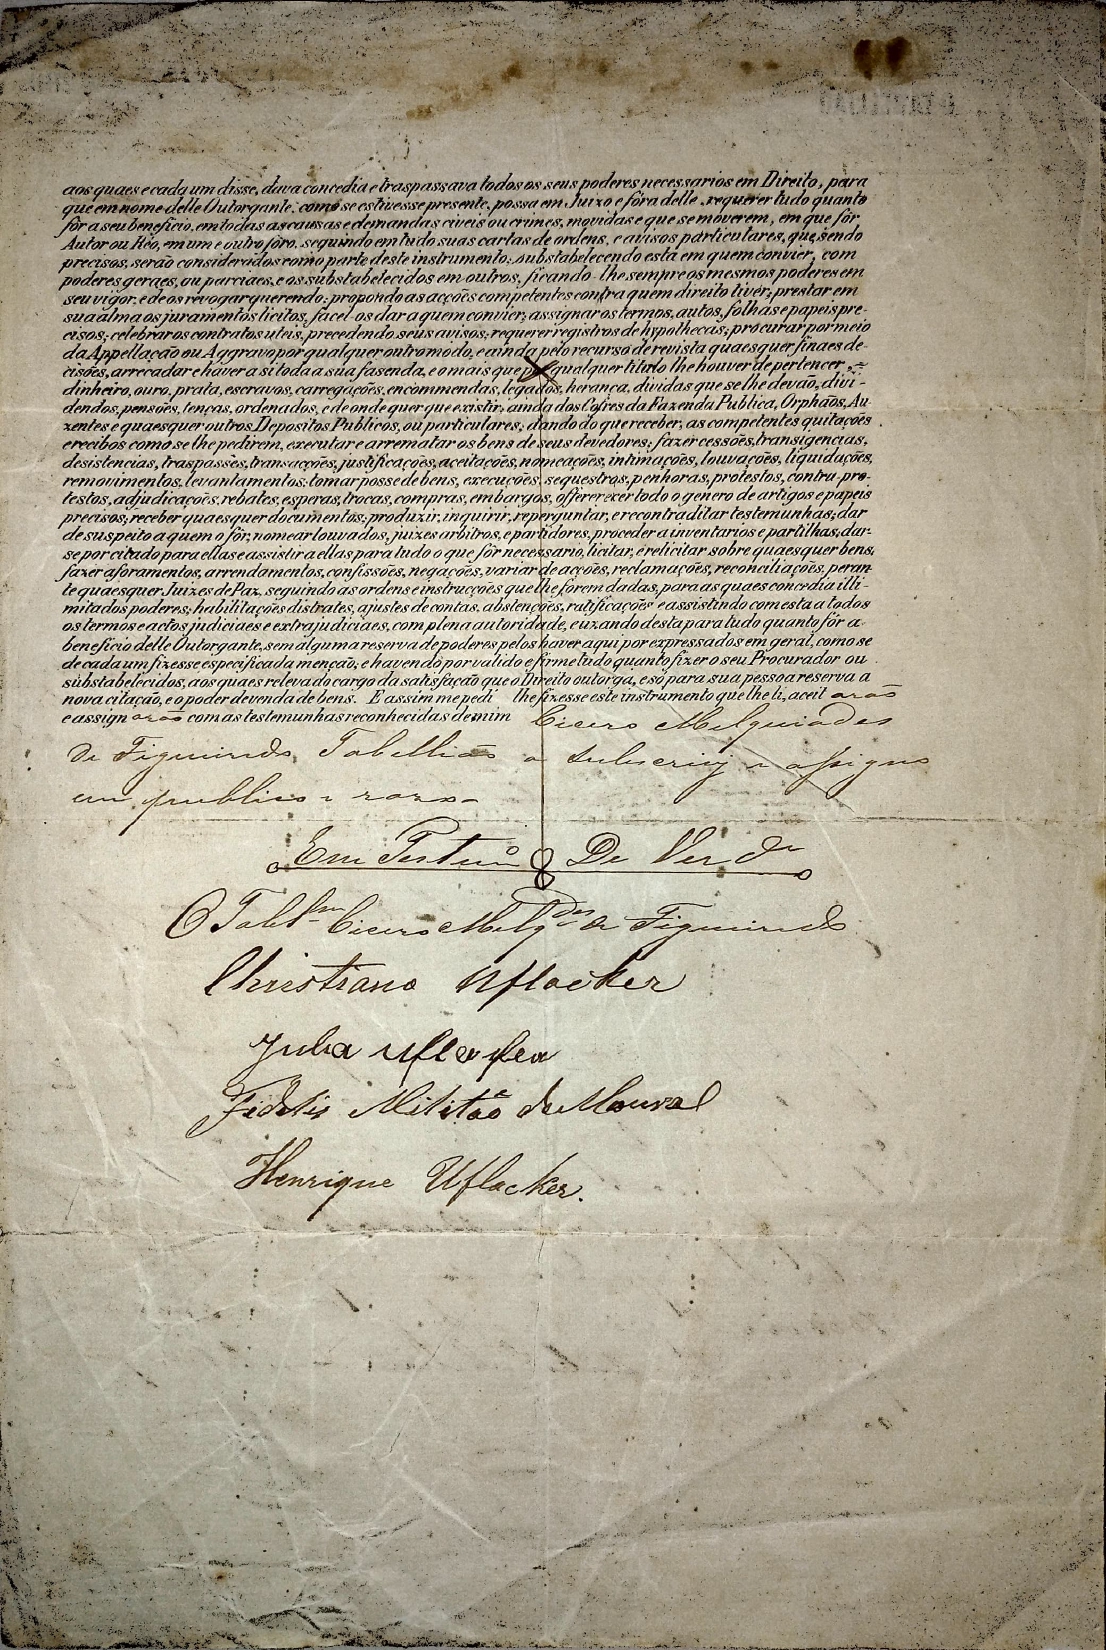 aos quaes e cada um disse, dava concedia e traspassava todos os seus poderes necessarios em Direito, para
que em nome delle Outorgante, como se estivesse presente, possa em Juizo e fóra delle, requerer tudo quanto
fôr a seu beneficio, em todas as causas e demandas civeis ou crimes, movidas e que se moverem, em que fôr
Autor ou Réo, em um e outro fôro, seguindo em tudo suas cartas de ordens, e avisos particulares, que, sendo
precisos, serão considerados como parte deste instrumento: substabelecendo esta em quem convier, com
poderes geraes, ou parciaes, e os substabelecidos em outros, ficando-lhe sempre os mesmos poderes em
seu vigor, e de os revogar querendo: propondo as acções competentes contra quem direito tiver; prestar em
sua alma os juramentos licitos, fazel-os dar a quem convier; assignar os termos, autos, folhas e papeis pre-
cisos; celebrar os contratos uteis, precedendo seus avisos; requerer registros de hypothecas; procurar por meio
da Appellação ou Aggravo por qualquer outro modo, e ainda pelo recurso de revista quaesquer finaes de-
cisões, arrecadar e haver a si toda a sua fasenda, e o mais que por qualquer titulo lhe houver de pertencer,
dinheiro, ouro, prata, escravos, carregações, encommendas, legados, herança, dividas que se lhe devão, divi-
dendos, pensões, tenças, ordenados, e de onde quer que existir, ainda dos Cofres da Fazenda Publica, Orphãos, Au-
zentes e quaesquer outros Depositos Publicos, ou particulares; dando do que receber, as competentes quitações
e recibos como se lhe pedirem, executar e arrematar os bens de seus devedores; fazer cessões, transigencias,
desistencias, traspasses, transacções, justificações, aceitações, nomeações, intimações, louvações, liquidações,
removimentos, levantamentos: tomar posse de bens, execuções, sequestros, penhoras, protestos, contra-pro-
testos, adjudicações, rebates, esperas, trocas, compras, embargos, offererexer todo o genero de artigos e papeis
precisos; receber quaesquer documentos; produzir, inquirir, reperguntar, e recontraditar testemunhas; dar
de suspeito a quem o fôr; nomear louvados, juizes arbitros, e partidores, proceder a inventarios e partilhas, dar-
se por citado para ellas e assistir a ellas para tudo o que fôr necessario, licitar, e relicitar sobre quaesquer bens,
fazer aforamentos, arrendamentos, confissões, negações, variar de acções, reclamações, reconciliações, peran-
te quaesquer Juizes de Paz, seguindo as ordens e instrucções que lhe forem dadas, para as quaes concedia illi-
mitados poderes; habilitações distrates, ajustes de contas, abstenções, ratificações e assistindo com esta a todos
os termos e actos judiciaes e extrajudiciaes, com plena autoridade, e uzando desta para tudo quanto fôr a
beneficio delle Outorgante, sem alguma reserva de poderes pelos haver aqui por expressados em geral, como se
de cada um fizesse especificada menção; e havendo por valido e firme tudo quanto fizer o seu Procurador ou
substabelecidos, aos quaes releva do cargo da satisfação que o Direito outorga, e só para sua pessoa reserva a
nova citação, e o poder de venda de bens. E assim me pedi lhe fizesse este instrumento que lhe li, aceit arão
e assign arão com as testemunhas reconhecidas de mim Cicero Melquiades
de Figueiredo, Tabellião o subscrevy e assigno
em publico e razo.
Em Testemº De Verde
O Tablam Cicero Melqdes de Figueiredo
Christiano Uflacker
Julia Uflacker
Fidelis Militão de Moural
Henrique Uflacker.